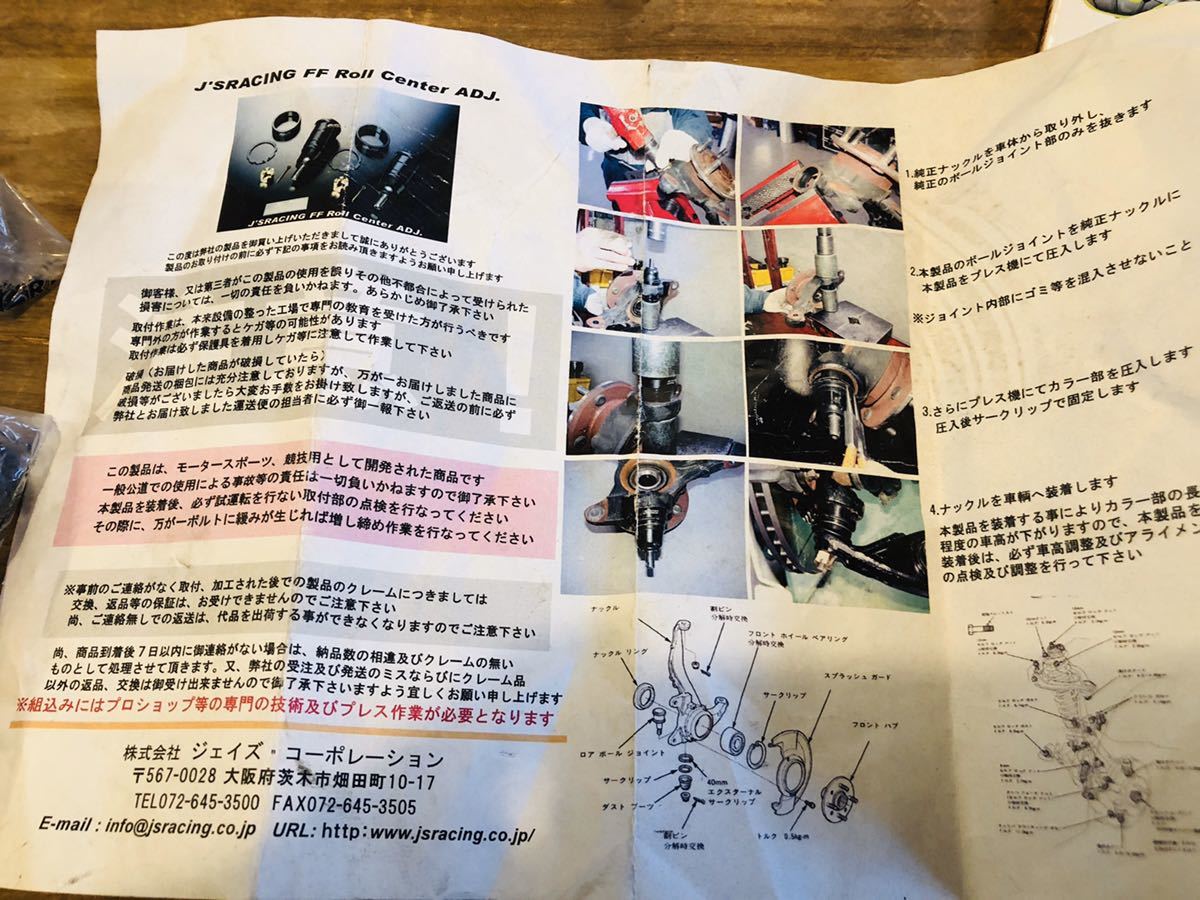 J'SRACING FF Roll Center ADJ.
J'SRACING FF Roll Center ADJ.
この度は弊社の製品を御買い上げいただきまして誠にありがとうございます
製品のお取り付けの前に必ず下記の事項をお読み頂きますようお願い申し上げます
御客様、又は第三者がこの製品の使用を誤りその他不都合によって受けられた
損害については、一切の責任を負いかねます。あらかじめ御了承下さい
取付作業は、本来設備の整った工場で専門の教育を受けた方が行うべきです
専門外の方が作業するとケガ等の可能性があります
取付作業は必ず保護具を着用しケガ等に注意して作業して下さい
破損（お届けした商品が破損していたら）
商品発送の梱包には充分注意しておりますが、万が一お届けしました商品に
破損等がございましたら大変お手数をお掛け致しますが、ご返送の前に必ず
弊社とお届け致しました運送便の担当者に必ず御一報下さい
この製品は、モータースポーツ、競技用として開発された商品です
一般公道での使用による事故等の責任は一切負いかねますので御了承下さい
本製品を装着後、必ず試運転を行ない取付部の点検を行なってください
その際に、万が一ボルトに緩みが生じれば増し締め作業を行なってください
※事前のご連絡がなく取付、加工された後での製品のクレームにつきましては
交換、返品等の保証は、お受けできませんのでご注意下さい
尚、ご連絡無しでの返送は、代品を出荷する事ができなくなりますのでご注意下さい
尚、商品到着後７日以内に御連絡がない場合は、納品数の相違及びクレームの無い
ものとして処理させて頂きます。又、弊社の受注及び発送のミスならびにクレーム品
以外の返品、交換は御受け出来ませんので御了承下さいますよう宜しくお願い申し上げます
※組込みにはプロショップ等の専門の技術及びプレス作業が必要となります
株式会社 ジェイズ・コーポレーション
〒567-0028 大阪府茨木市畑田町10-17
TEL072-645-3500 FAX072-645-3505
E-mail : info@jsracing.co.jp URL: http: www.jsracing.co.jp/
1.純正ナックルを車体から取り外し、
純正のボールジョイント部のみを抜きます
2.本製品のボールジョイントを純正ナックルに
本製品をプレス機にて圧入します
※ジョイント内部にゴミ等を混入させないこと
3.さらにプレス機にてカラー部を圧入します
圧入後サークリップで固定します
4.ナックルを車輌へ装着します
本製品を装着する事によりカラー部の長
程度の車高が下がりますので、本製品を
装着後は、必ず車高調整及びアライメン
の点検及び調整を行って下さい
ナックル
割ピン
分解時交換
フロント ホイール ベアリング
分解時交換
ナックル リング
サークリップ
スプラッシュ ガード
フロント ハブ
ロア ボール ジョイント
サークリップ
ダスト ブーツ
40mm
エクスターナル
サークリップ
割ピン
分解時交換
トルク 0.5kg-m